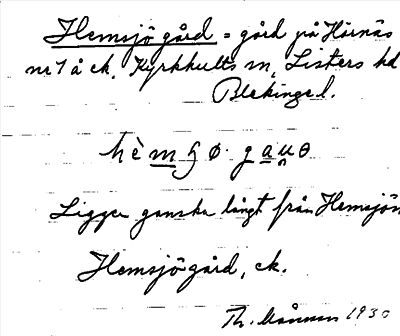 Hemsjö gård = gård på Härnäs
nr 1 å ek. Kyrkhults sn, Listers hd
Blekinge l.
hèmɧø· gauə
Ligger ganska långt från Hemsjön
Hemsjögård, ek.
Th. 1930